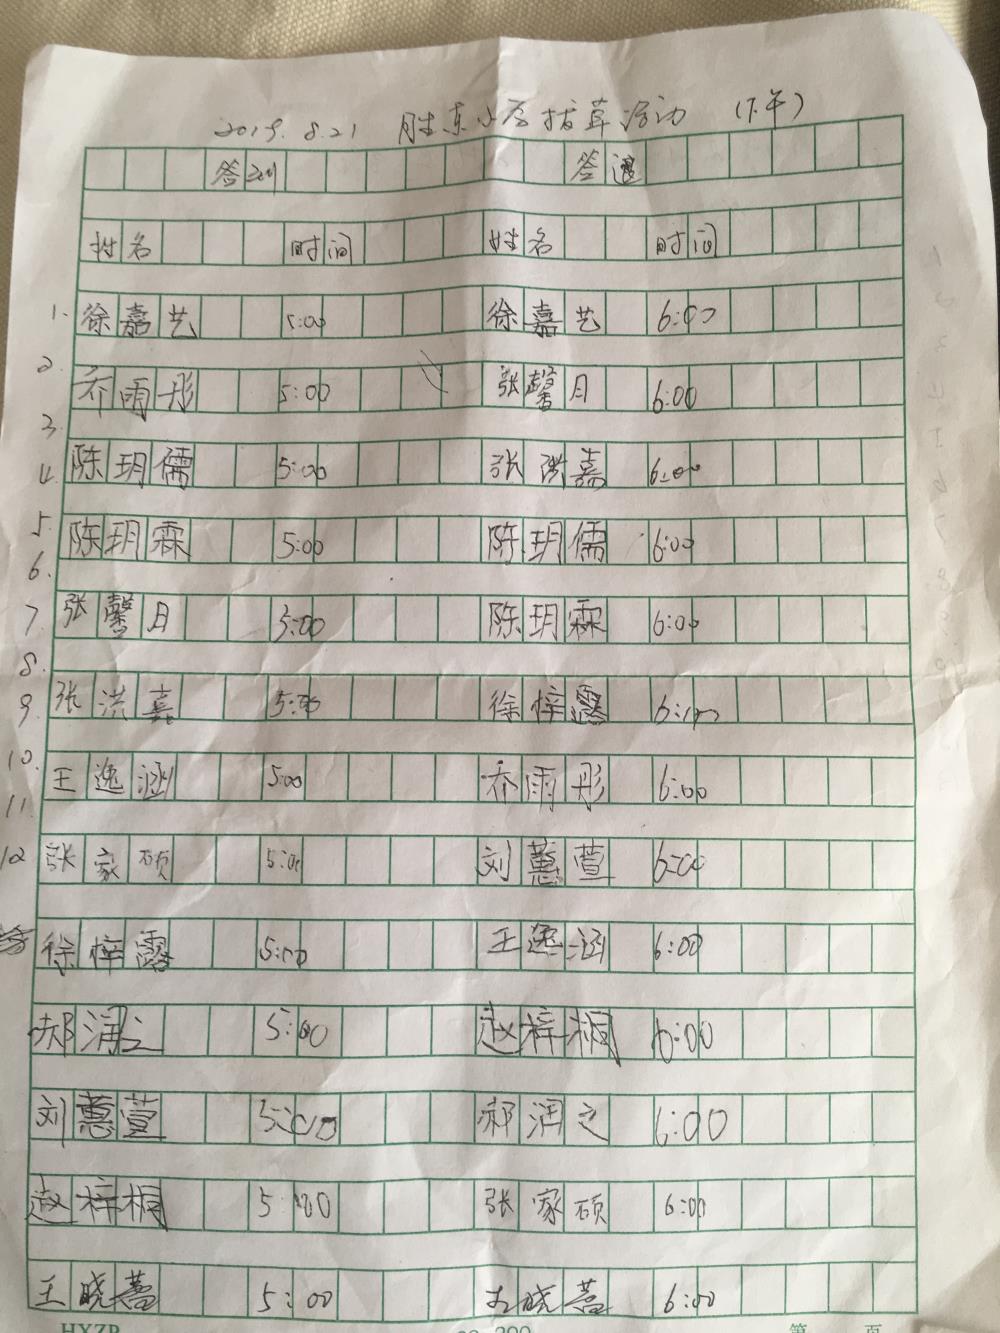 2019.8.21 胜东小区拔草活动 (下午)
答到 答退
姓名 时间 姓名 时间
1. 徐嘉艺 5:00 徐嘉艺 6:00
2. 乔雨彤 5:00 张馨月 6:00
3.
陈玥儒 5:00 张洪嘉 6:00
4.
5. 陈玥霖 5:00 陈玥儒 6:00
6.
7. 张馨月 5:00 陈玥霖 6:00
8.
9. 张洪嘉 5:00 徐梓露 6:00
10. 王逸涵 5:00 乔雨彤 6:00
11.
12 张家硕 5:00 刘蕙萱 6:00
徐梓露 5:00 王逸涵 6:00
郝润之 5:00 赵梓桐 6:00
刘蕙萱 5:00 郝润之 6:00
赵梓桐 5:00 张家硕 6:00
王晓 5:00 王晓 6:00
HXZP 第 页